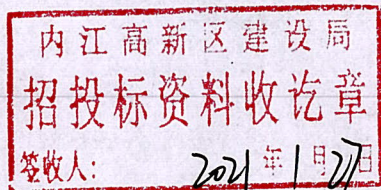 内江高新区建设局
招投标资料收讫章
签收人: 2021年1月27日